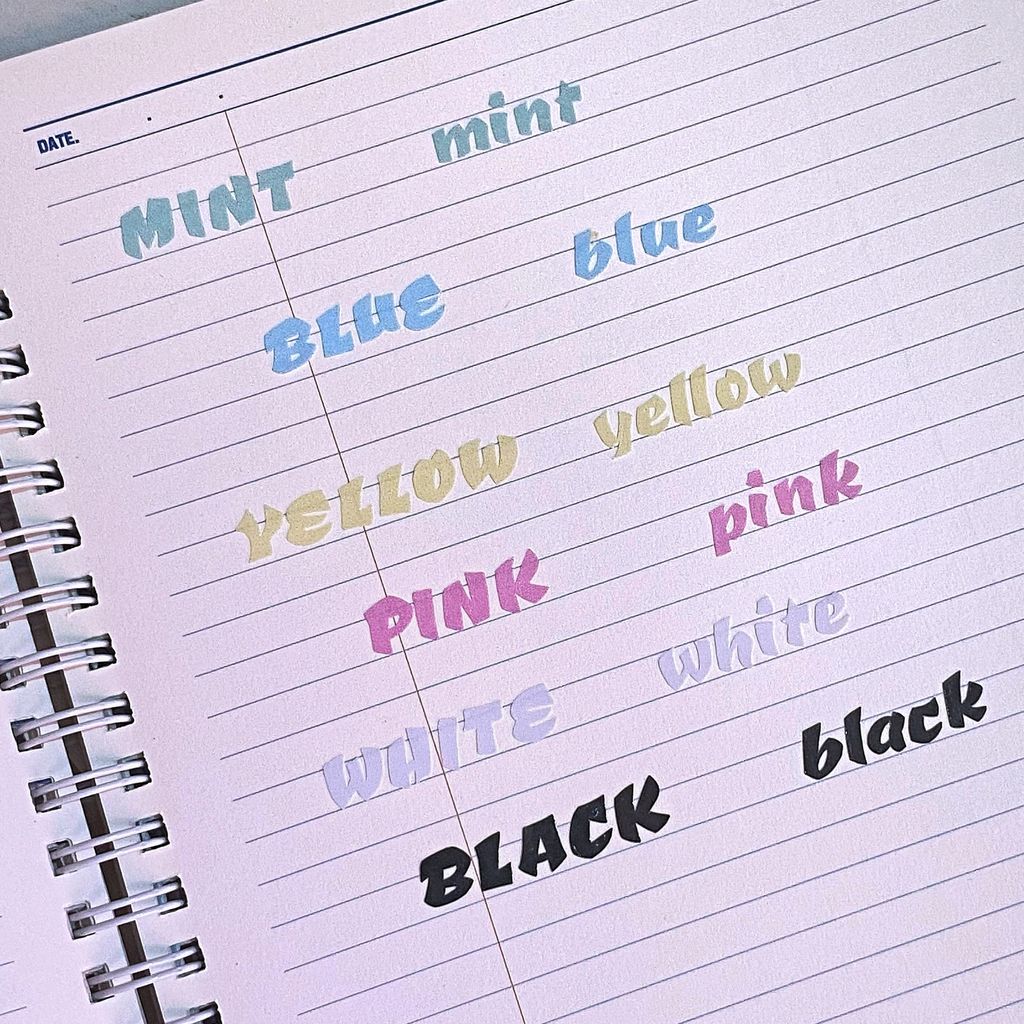 DATE.
MINT mint
BLUE blue
YELLOW yellow
PINK pink
WHITE white
BLACK black